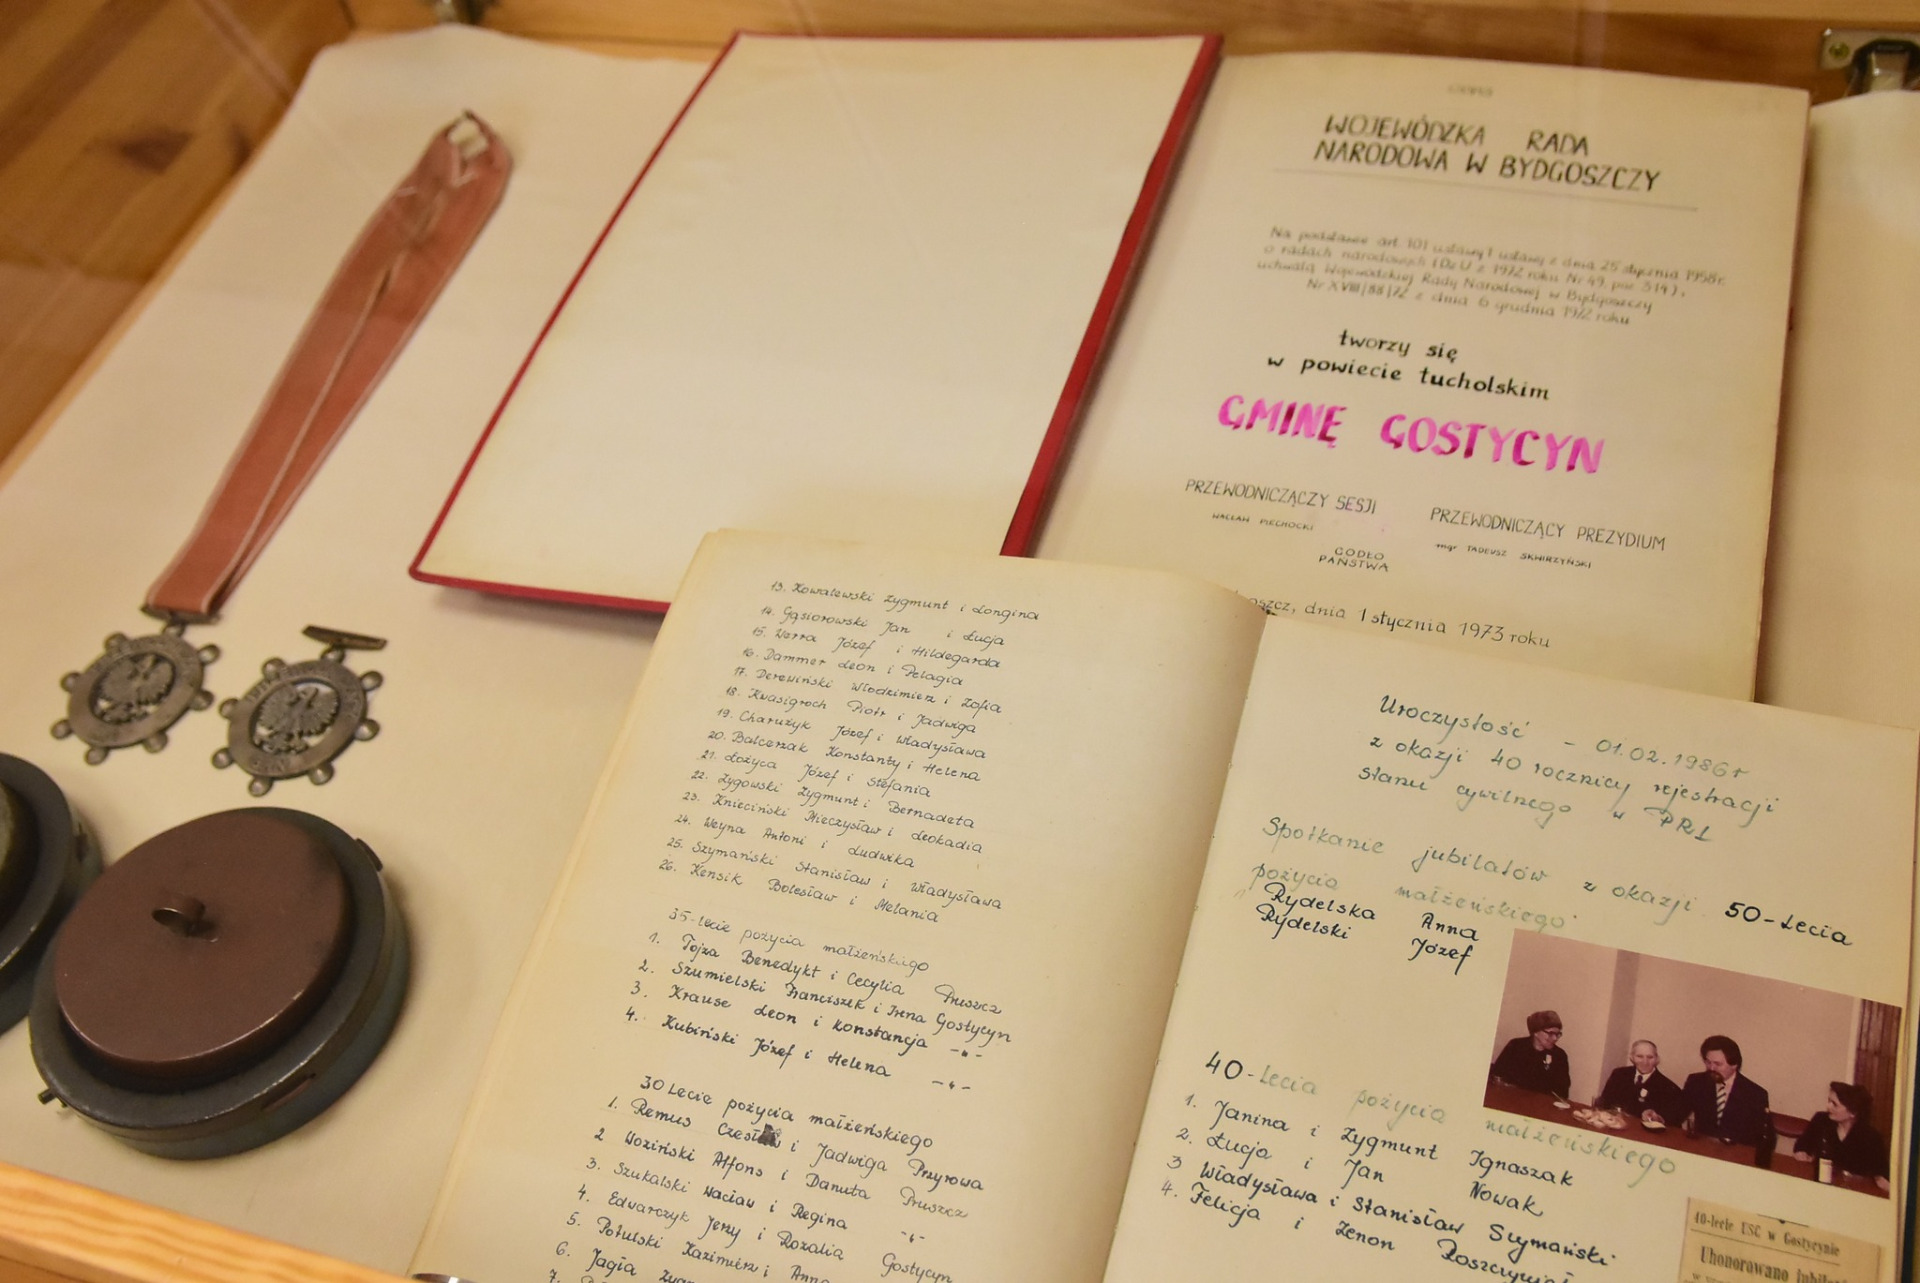 WOJEWÓDZKA RADA
NARODOWA W BYDGOSZCZY
Na podstawie art. 101 ustawy z dnia 25 stycznia 1958 r.
o radach narodowych (Dz U z 1972 roku Nr 49, poz 314),
uchwałą Wojewódzkiej Rady Narodowej w Bydgoszczy
Nr XVIII/88/72 z dnia 6 grudnia 1972 roku
tworzy się
w powiecie tucholskim
GMINĘ GOSTYCYN
PRZEWODNICZĄCZY SESJI
WACŁAW PIECHOCKI
PRZEWODNICZĄCY PREZYDIUM
mgr TADEUSZ SKWIRZYŃSKI
GODŁO
PAŃSTWA
oszcz, dnia 1 stycznia 1973 roku
13. Kowalewski Zygmunt i Longina
14. Gąsiorowski Jan i Łucja
15. Werra Józef i Hildegarda
16. Dammer Leon i Pelagia
17. Derewiński Włodzimierz i Zofia
18. Kwasigroch Piotr i Jadwiga
19. Charużyk Józef i Władysława
20. Balcerzak Konstanty i Helena
21. Łożyca Józef i Stefania
22. Zygowski Zygmunt i Bernadeta
23. Knieciński Mieczysław i Leokadia
24. Weyna Antoni i Ludwika
25. Szymański Stanisław i Władysława
26. Kensik Bolesław i Melania
35-lecie pożycia małżeńskiego
1. Tojza Benedykt i Cecylia Pruszcz
2. Szumielski Franciszek i Irena Gostycyn
3. Krause Leon i Konstancja -"-
4. Kubiński Józef i Helena -"-
30 Lecie pożycia małżeńskiego
1. Remus Czesław i Jadwiga Przyrowa
2 Woziński Alfons i Danuta Pruszcz
3. Szukalski Wacław i Regina -"-
4. Edwarczyk Jerzy i Rozalia Gostycyn
5. Potulski Kazimierz i Anna
6. Jagła
7.
Uroczystość - 01.02.1986 r
z okazji 40 rocznicy rejestracji
stanu cywilnego w PRL
Spotkanie jubilatów z okazji 50-Lecia
pożycia małżeńskiego
Rydelska Anna
Rydelski Józef
40-Lecia pożycia małżeńskiego
1. Janina i Zygmunt Ignaszak
2. Łucja i Jan Nowak
3 Władysława i Stanisław Szymański
4. Felicja i Zenon
40-lecie USC w Gostycynie
Uhonorowano